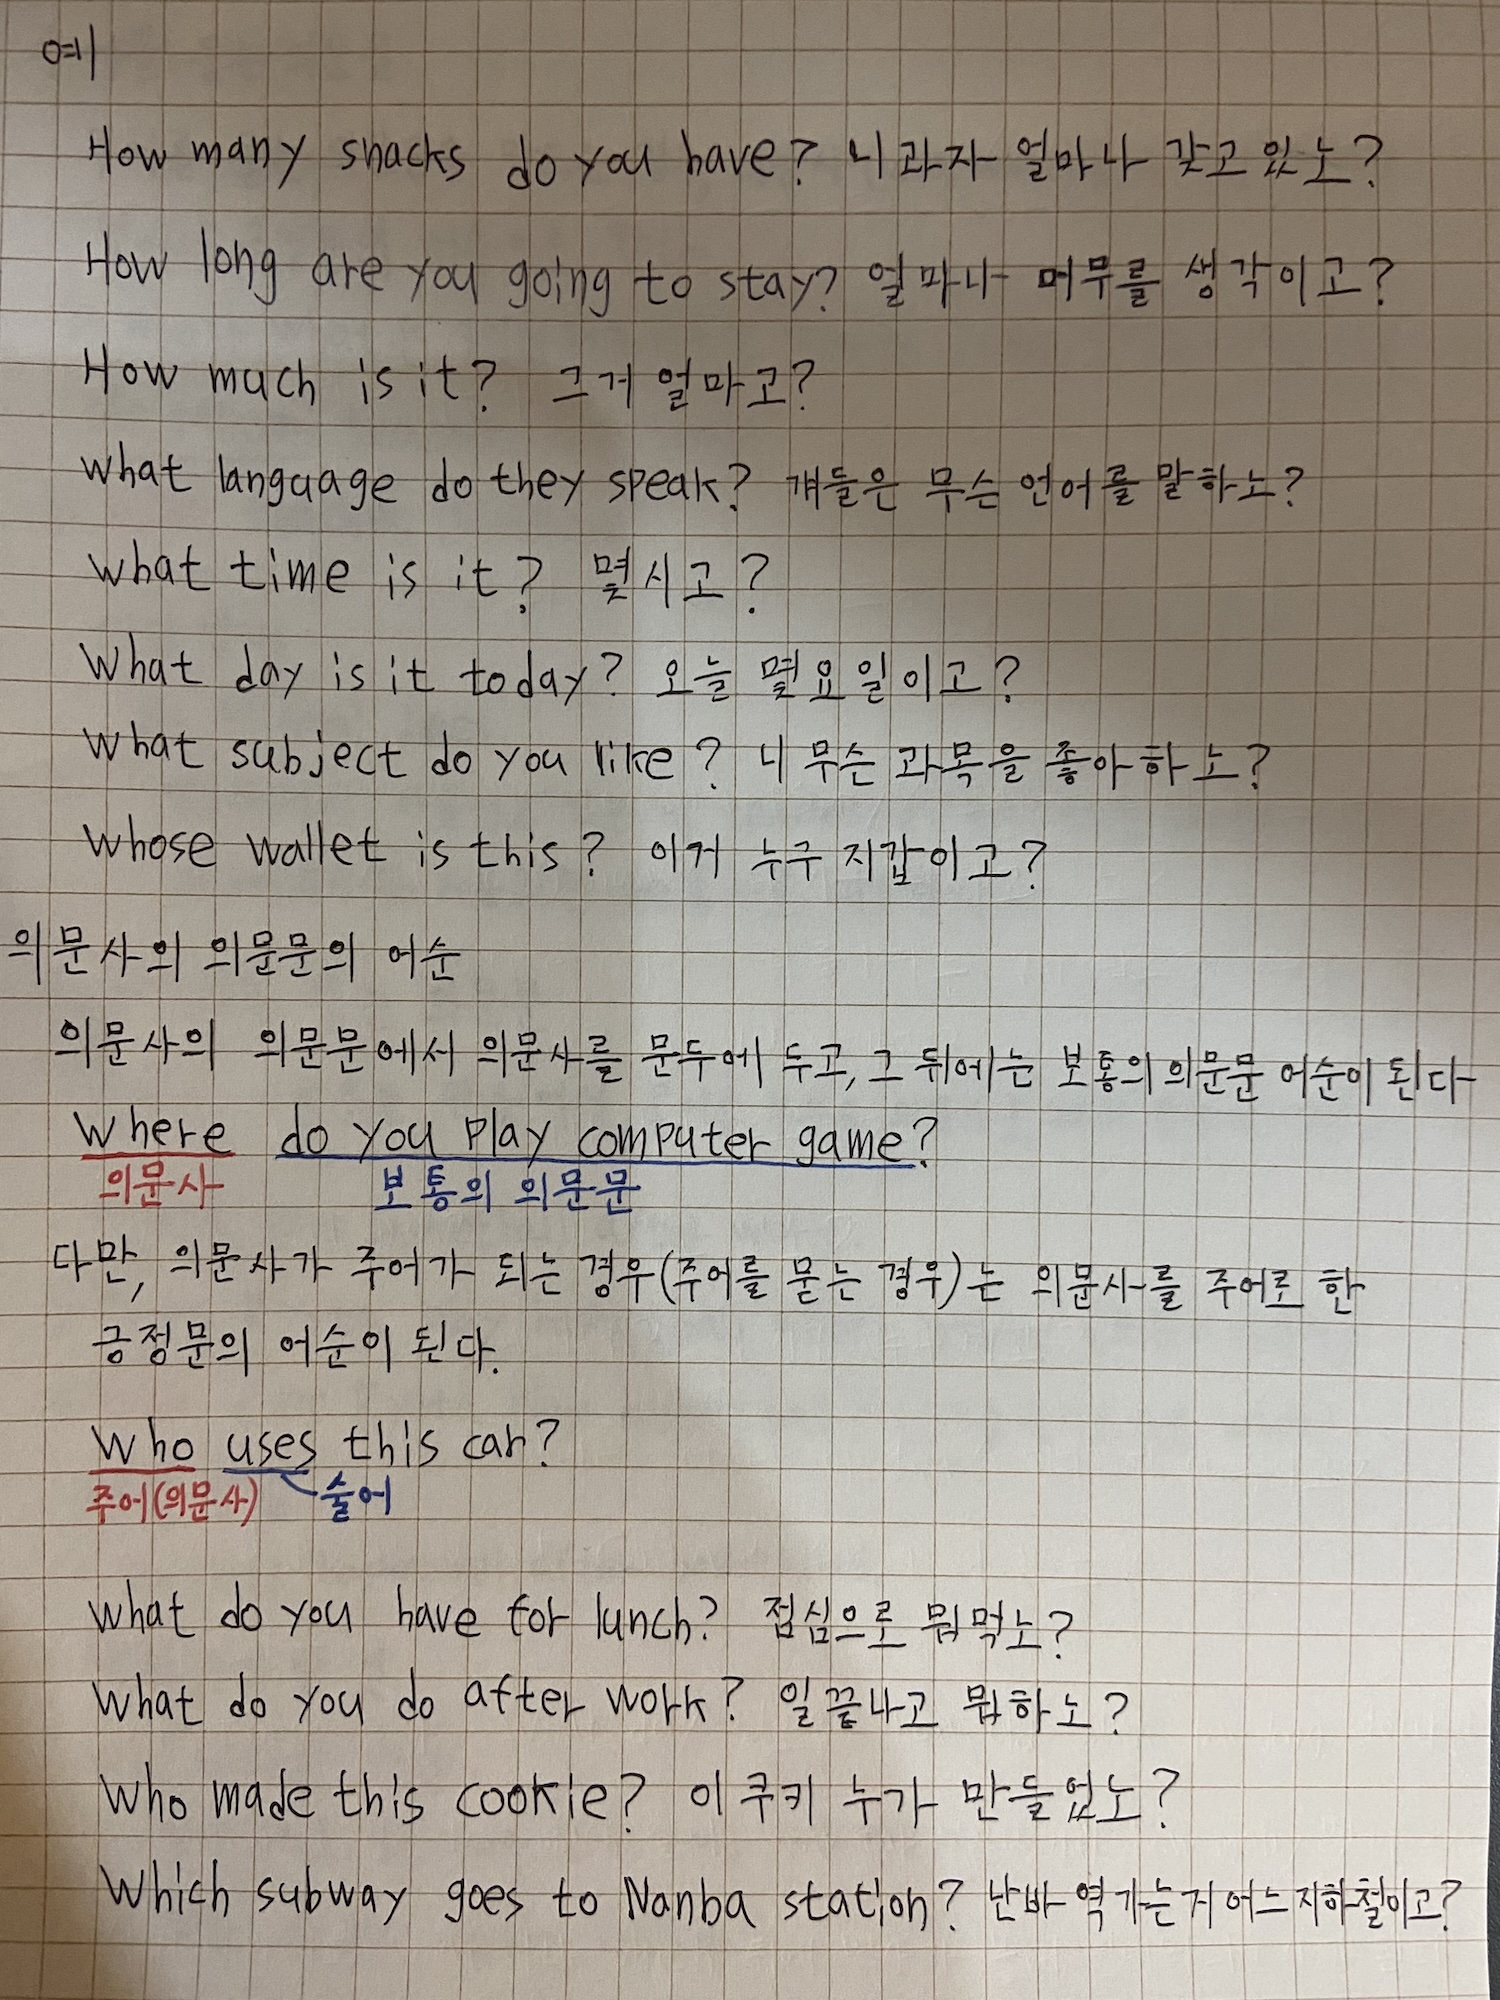 예
How many snacks do you have? 니 과자 얼마나 갖고 있노?
How long are you going to stay? 얼마나 머무를 생각이고?
How much is it? 그거 얼마고?
What language do they speak? 걔들은 무슨 언어를 말하노?
What time is it? 몇시고?
What day is it today? 오늘 몇요일이고?
What subject do you like? 니 무슨 과목을 좋아하노?
Whose wallet is this? 이거 누구 지갑이고?
의문사의 의문문의 어순
의문사의 의문문에서 의문사를 문두에 두고, 그 뒤에는 보통의 의문문 어순이 된다
Where do you play computer game?
의문사 보통의 의문문
다만, 의문사가 주어가 되는 경우(주어를 묻는 경우)는 의문사를 주어로 한
긍정문의 어순이 된다.
Who uses this car?
주어(의문사) 술어
What do you have for lunch? 점심으로 뭐먹노?
What do you do after work? 일 끝나고 뭐하노?
Who made this cookie? 이 쿠키 누가 만들었노?
Which subway goes to Nanba station? 난바 역 가는거 어느 지하철이고?